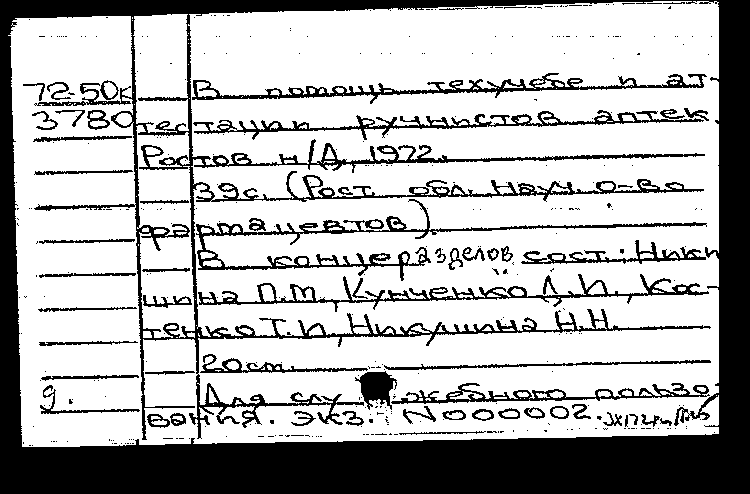 72-50к В помощь техучебе и ат-
3780 тестации ручнистов аптек.
Ростов н/Д., 1972.
39с. (Рост. обл. науч. о-во
фармацевтов).
В конце разделов сост.: Ники
шина П.М., Кунченко Д.И., Кос-
тенко Т.И., Никушина Н.Н.
20см.
9. Для служебного пользо-
вания. Экз. N000002.